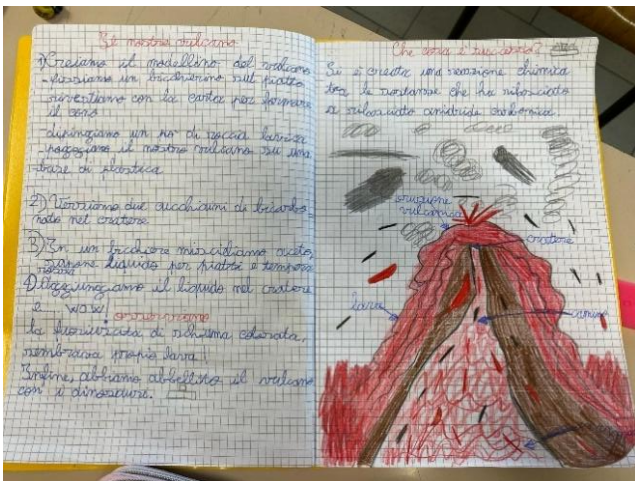 Il nostro vulcano
1) Creiamo il modellino del vulcano
- fissiamo un bicchierino sul piatto
- rivestiamo con la carta per formare
il cono
- dipingiamo un po' di roccia lavica
- poggiamo il nostro vulcano su una
base di plastica
2) Versiamo due cucchiaini di bicarbo=
nato nel cratere
3) In un bicchiere mischiamo aceto,
sapone liquido per piatti e tempera
rossa
4) Aggiungiamo il liquido nel cratere
e... WOW!
la fuoriuscita di schiuma colorata,
sembrava proprio lava!
Infine, abbiamo abbellito il vulcano
con i dinosauri.
Che cosa è successo?
Si è creata una reazione chimica
tra le sostanze che ha rilasciato
anidride carbonica.
eruzione
vulcanica
cratere
lava
camino